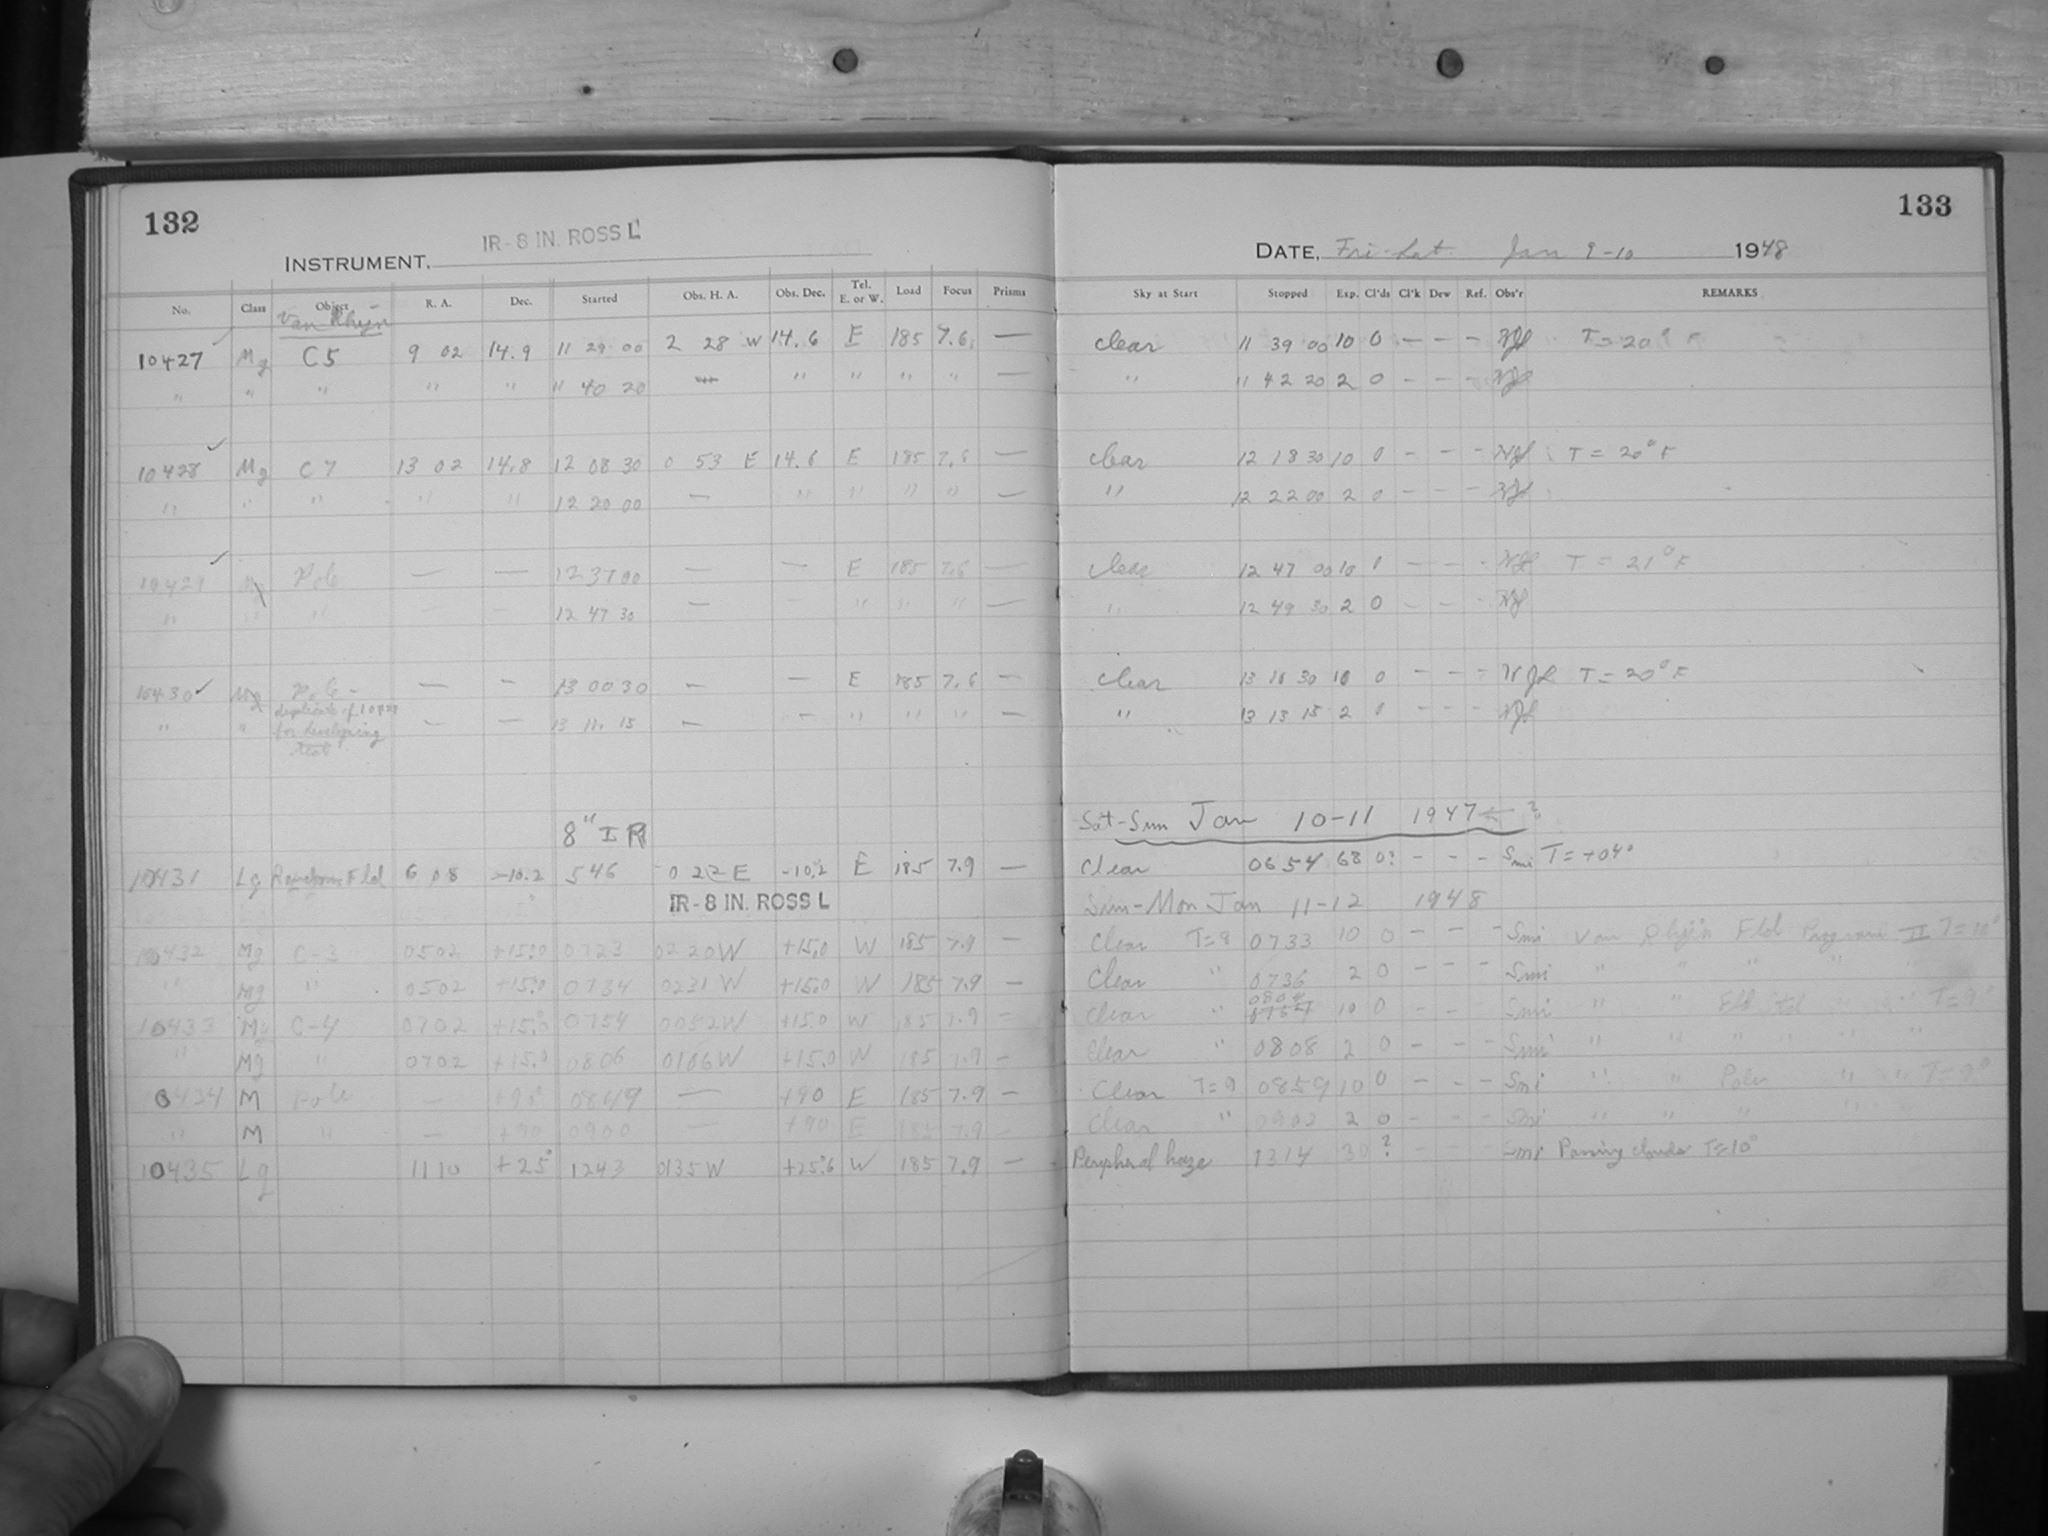 132
IR-8 IN. ROSS L
INSTRUMENT,
No. Class Object R. A. Dec. Started Obs. H. A. Obs. Dec. Tel. E. or W. Load Focus Prisms
Van Rhijn
10427 Mg C5 9 02 14.9 11 29 00 2 28 W 14.6 E 185 7.6 —
" " " " " 11 40 20 " " " " —
10428 Mg C7 13 02 14.8 12 08 30 0 53 E 14.6 E 185 7.6 —
" " " " " 12 20 00 — " " " " —
10429 Mg Pole — — 12 37 00 — — E 185 7.6 —
" " " — — 12 47 30 — — " " " —
10430 Mg Pole — — — 13 00 30 — — E 185 7.6 —
duplicate of 10429
" " for developing — — 13 11 15 — — " " " —
test
8" IR
10431 Lg Fld 6 08 -10.2 546 0 22 E -10.2 E 185 7.9 —
IR-8 IN. ROSS L
10432 Mg C-3 0502 +15.0 0723 0220W +15.0 W 185 7.9 —
" Mg " 0502 +15.0 0734 0231 W +15.0 W 185 7.9 —
10433 Mg C-4 0702 +15.0 0754 0052W +15.0 W 185 7.9 —
" Mg " 0702 +15.0 0806 0106W +15.0 W 185 7.9 —
0434 M Pole — +90 0849 — +90 E 185 7.9 —
" M " — +90 0900 — +90 E 185 7.9 —
10435 Lg 1110 +25° 1243 0135W +25.6 W 185 7.9 —
133
DATE, Fri-Sat. Jan 9-10 1948
Sky at Start Stopped Exp. Cl'ds Cl'k Dew Ref. Obs'r REMARKS
clear 11 39 00 10 0 — — — T = 20° F
" 11 42 20 2 0 — — —
clear 12 18 30 10 0 — — — T = 20° F
" 12 22 00 2 0 — — —
clear 12 47 00 10 — — — T = 21° F
" 12 49 30 2 0 — — —
clear 13 10 30 10 0 — — — T = 20° F
" 13 13 15 2 0 — — —
Sat-Sun Jan 10-11 1947 ← ?
Clear 0654 68 0? — — — Smi T = +04°
Sun-Mon Jan 11-12 1948
Clear T=9 0733 10 0 — — — Smi Van Rhijn Fld Program II T=10°
Clear " 0736 2 0 — — — Smi " " " " "
Clear " 0804 10 0 — — Smi " " Fld " " T=9°
Clear " 0808 2 0 — — — Smi " " " " " "
Clear T=9 0859 10 0 — — — Smi " " Pole " " T=9°
Clear " 0902 2 0 — — — Smi " " " " "
Peripheral haze 1314 30 ? — — — Smi Passing clouds T=10°